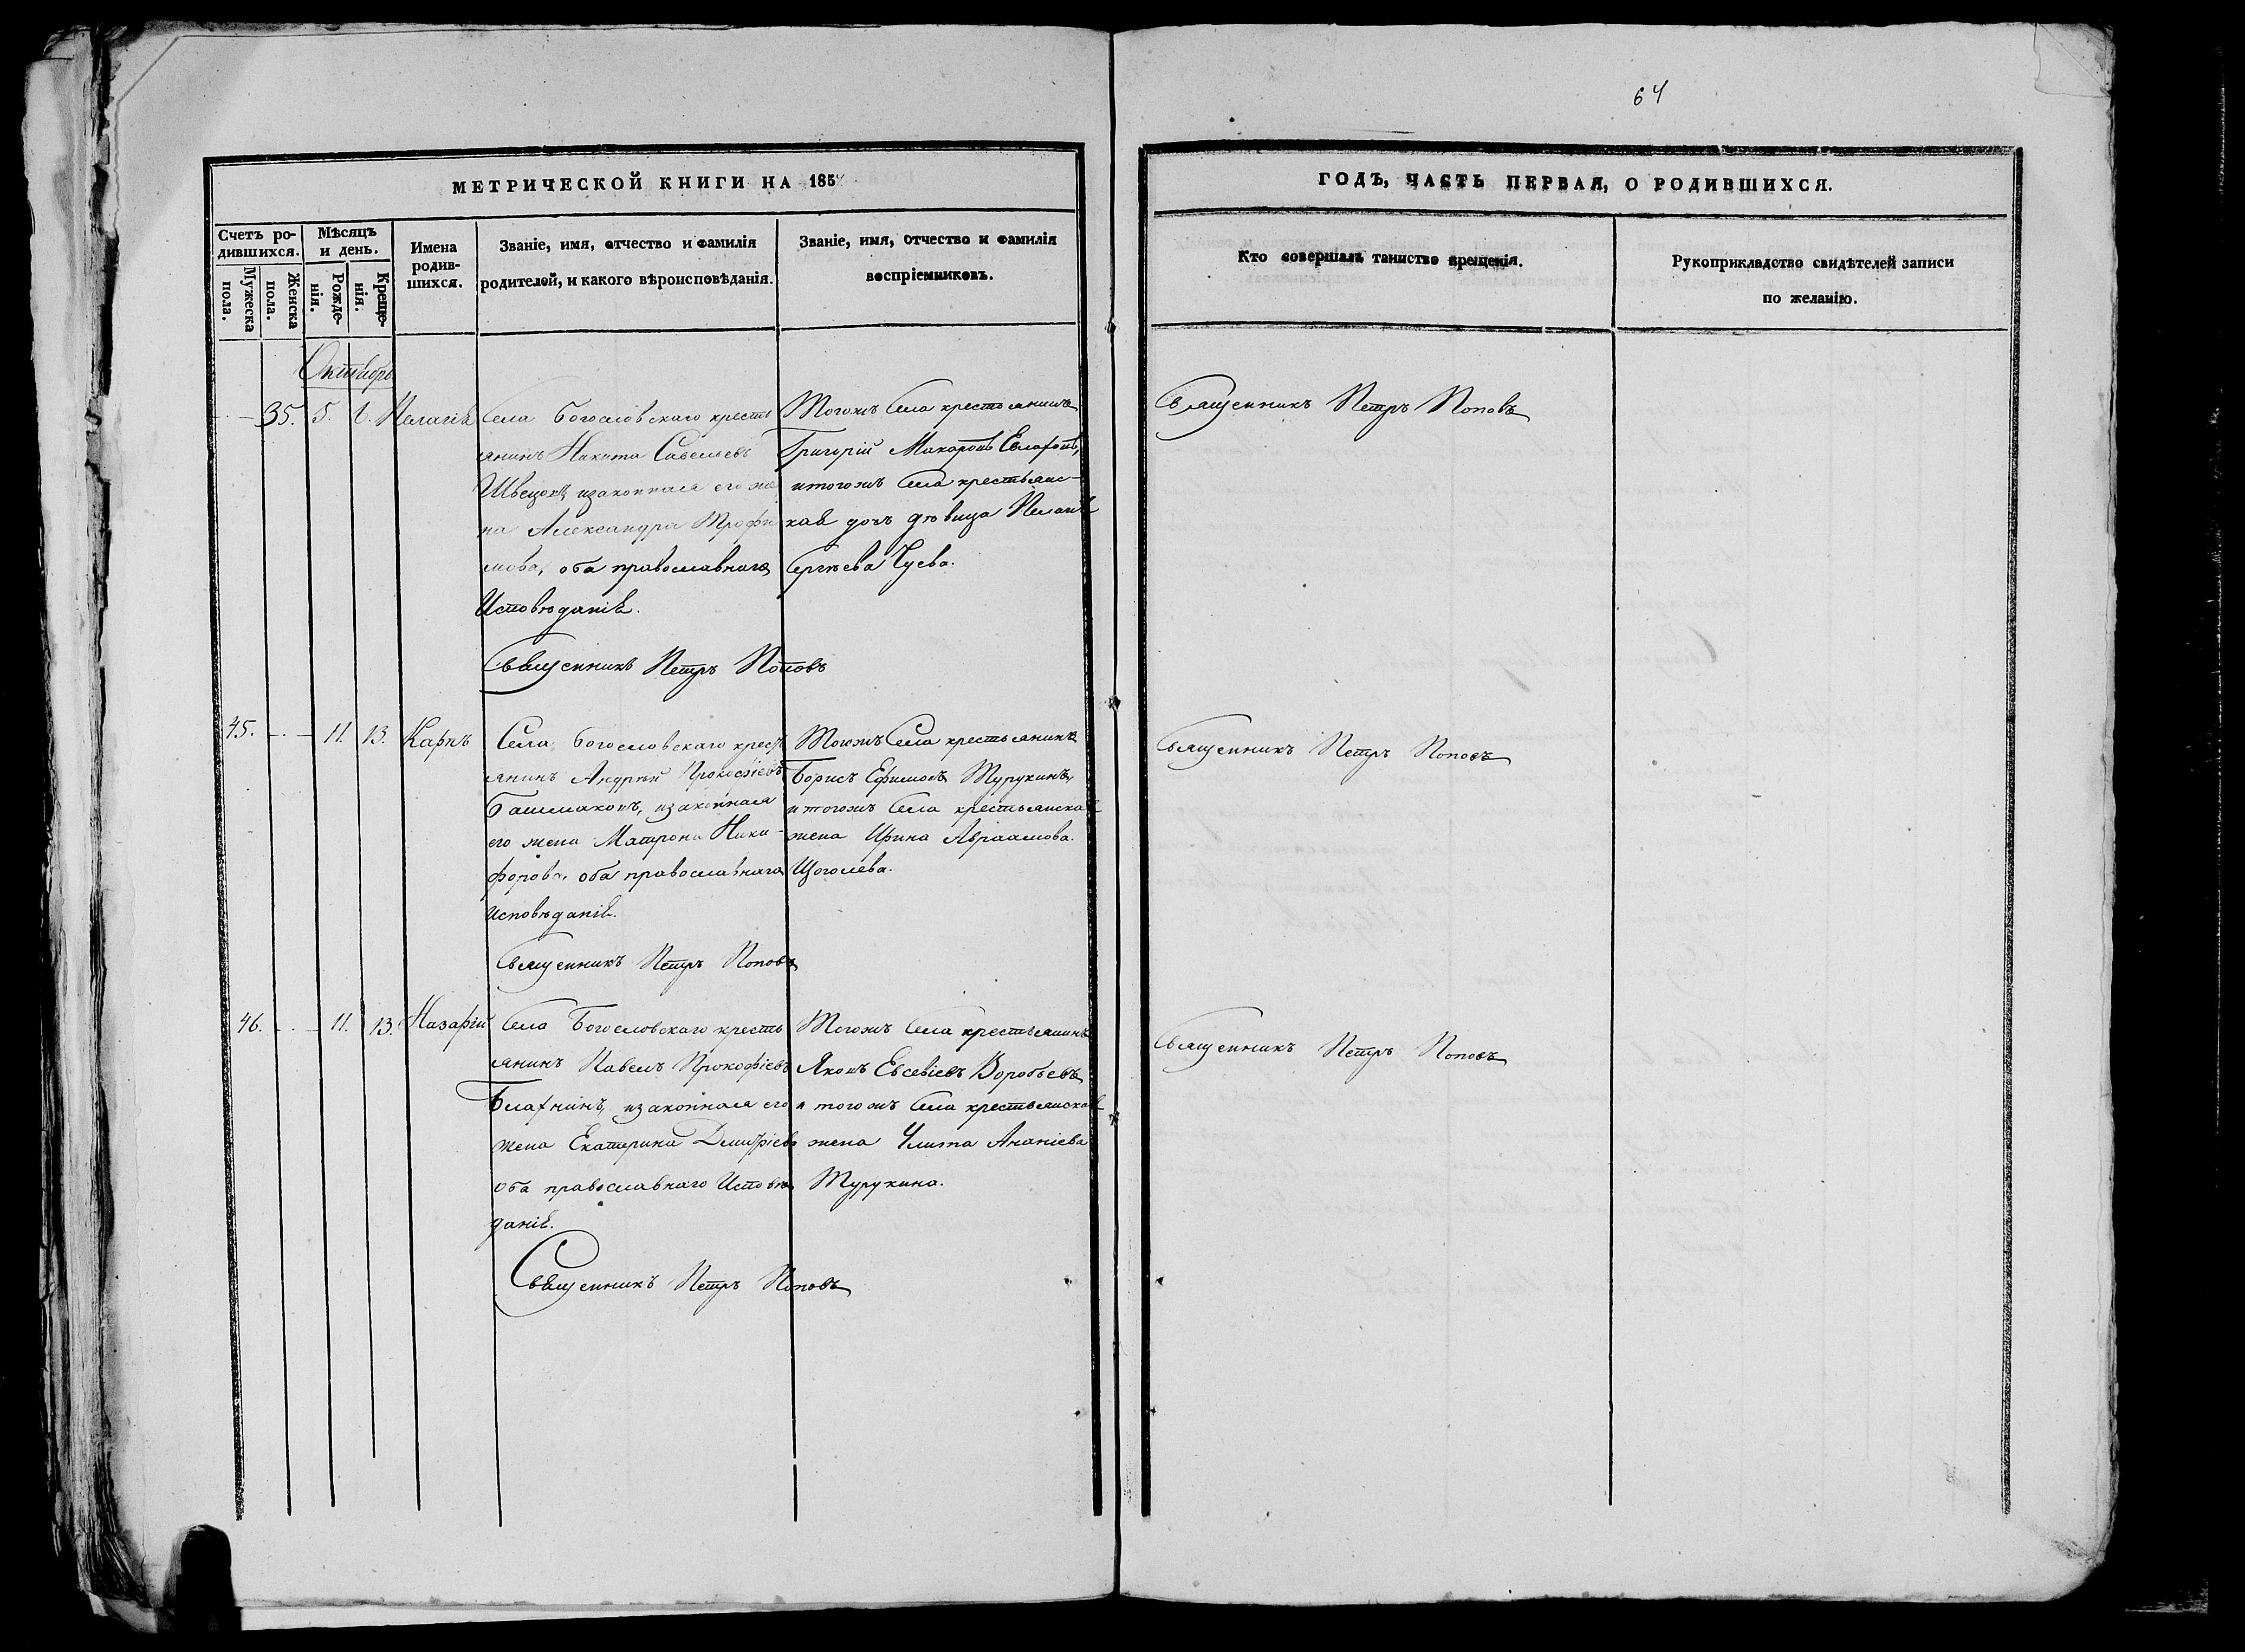 64
МЕТРИЧЕСКОЙ КНИГИ НА 185
ГОДЪ, ЧАСТЬ ПЕРВАЯ, О РОДИВШИХСЯ.
Счетъ ро-
дившихся.
Мужеска
пола.
Женска
пола.
Мѣсяцъ
и день.
Рожде-
нія.
Креще-
нія.
Имена
родив-
шихся.
Званіе, имя, отчество и фамилія
родителей, и какого вѣроисповѣданія.
Званіе, имя, отчество и фамилія
воспріемниковъ.
Кто совершалъ таинство крещенія.
Рукоприкладство свидѣтелей записи
по желанію.
Октябрь
35. 5. 6. Пелагія
Села Богословскаго кресть
янинъ Никита Савельевъ
Швецовъ, изаконная его же
на Александра Трофи
мова, оба православнаго
Исповѣданія.
Священникъ Петръ Поповъ
Тогожъ Села крестьянинъ
Григорій Макаровъ
итогожъ Села крестьянс-
кая дочь дѣвица Пелагія
Сергѣева Чуева.
Священникъ Петръ Поповъ
45. - 11. 13. Карпъ
Села Богословскаго крестъ
янинъ Андрей Прокофіевъ
Башмаковъ, изаконная
его жена Матрона Ники-
форова, оба православнаго
исповѣданія.
Священникъ Петръ Поповъ
Тогожъ Села крестьянинъ
Борисъ Ефимовъ Турухинъ,
итогожъ Села крестьянская
жена Ирина Авраамова.
Щоголева.
Священникъ Петръ Поповъ
46. - 11. 13. Назарій
Села Богословскаго кресть
янинъ Павелъ Прокофіевъ
изаконная его
жена Екатерина Димитріева
оба православнаго Исповѣ
данія.
Священникъ Петръ Поповъ
Тогожъ Села крестьянинъ
Яковъ Евсевіевъ Воробьевъ
и тогожъ Села крестьянская
жена Улита Ананіева
Турухина.
Священникъ Петръ Поповъ